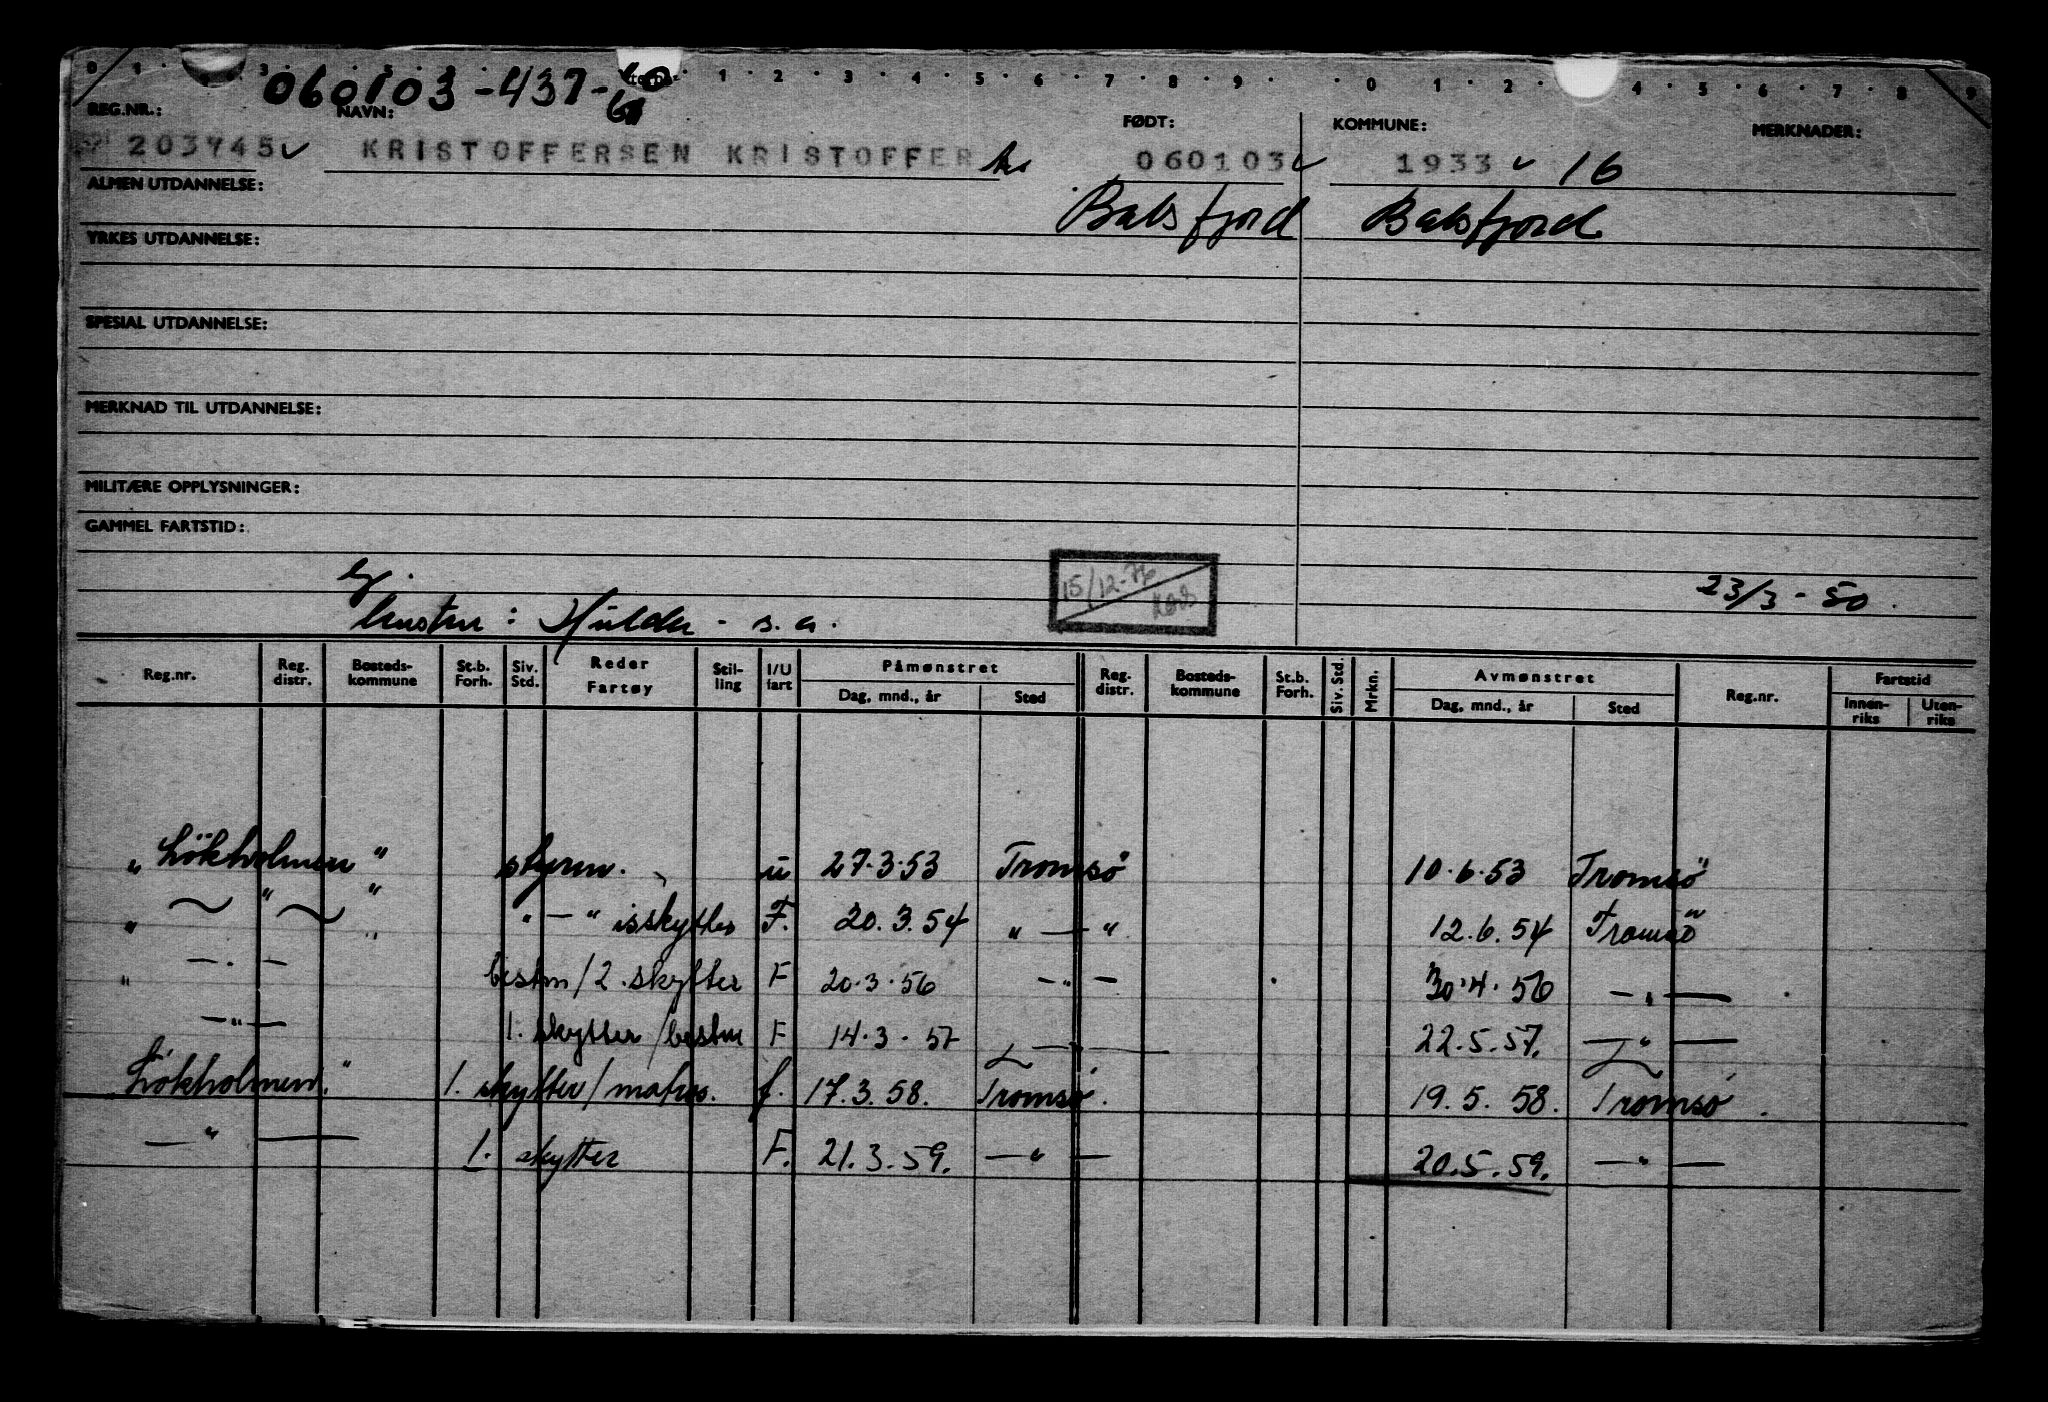 0 1 3 5 1 2 3 4 5 6 7 8 9 0 1 2 4 5 6 7 8 9
060103-437-60
REG.NR.: NAVN: FØDT: KOMMUNE: MERKNADER:
203745 KRISTOFFERSEN KRISTOFFER 060103 1933 16
ALMEN UTDANNELSE: Balsfjord Balsfjord
YRKES UTDANNELSE:
SPESIAL UTDANNELSE:
MERKNAD TIL UTDANNELSE:
MILITÆRE OPPLYSNINGER:
GAMMEL FARTSTID:
15/12-76 23/3-50.
: Hulder - s.a.
Reg.nr. Reg. distr. Bosteds-kommune St.b. Forh. Siv. Std. Reder Fartøy Stil-ling I/U fart Påmønstret Dag, mnd., år Sted Reg. distr. Bosteds-kommune St.b. Forh. Siv. Std. Mrkn. Avmønstret Dag, mnd., år Sted Reg.nr. Fartstid Innen-riks Uten-riks
" Lökholmen " styrm. u 27.3.53 Tromsö 10.6.53 Tromsö
" ~ " ~ " " — " isskytter F. 20.3.54 " — " 12.6.54 Tromsö
" — . — bestm/2.skytter F 20.3.56 — " — 30.4.56 — " —
— " — 1. skytter/bestm F 14.3.57 — — 22.5.57. — " —
Lökholmen. " 1. skytter/matros. f. 17.3.58. Tromsö. 19.5.58. Tromsö.
— " — 1. skytter F. 21.3.59. — " — 20.5.59. — " —